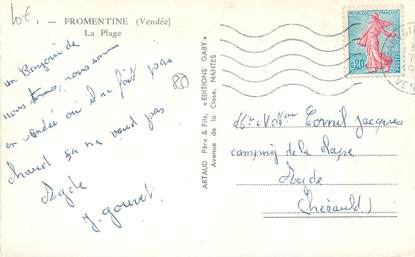 10t.
— FROMENTINE (Vendée)
La Plage
un Bonjour de
nous tous, nous sommes
en vendée où il ne fait pas
chaud sa ne vaud pas
Agde
J. gouret
ARTAUD Père & Fils, "EDITIONS GABY"
Avenue de la Close, NANTES
REPUBLIQUE FRANÇAISE
0,20
POSTES
Mr & Mme Cornil Jacques
camping de la Tape
Agde
(hérault)